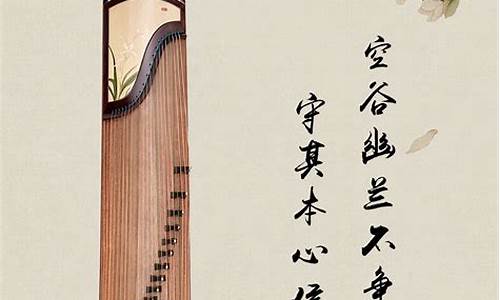 空谷幽兰不争
守其本心